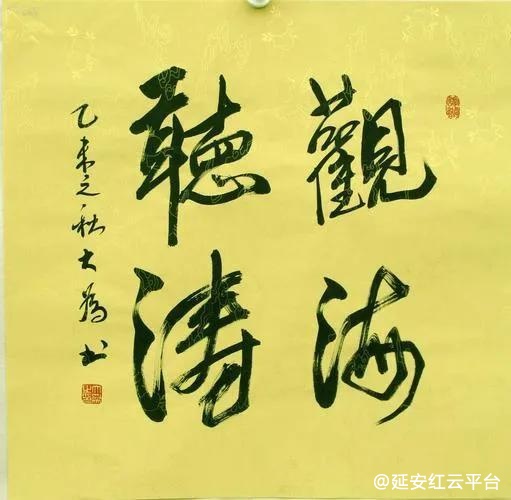 觀海
聽濤
乙未之秋大为书
@延安红云平台